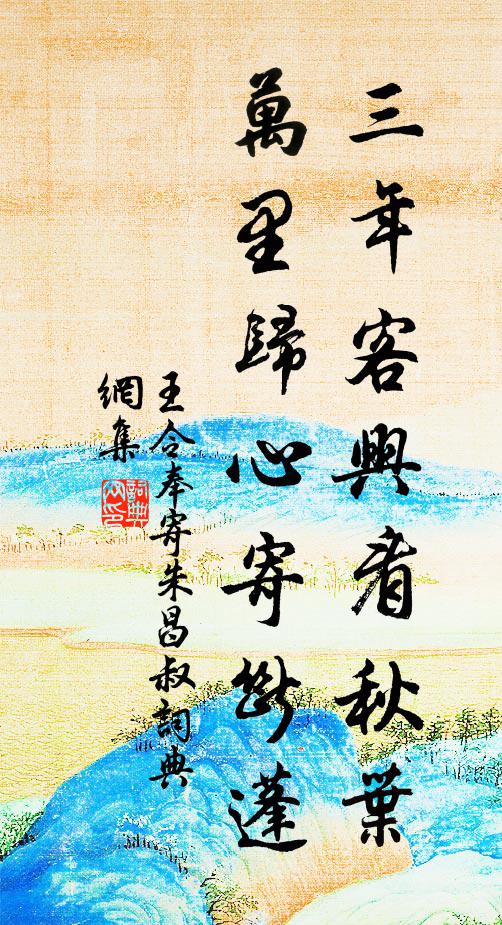 三年客興看秋葉
萬里歸心寄斷蓬
王令奉寄朱昌叔詞典
網集
詞典